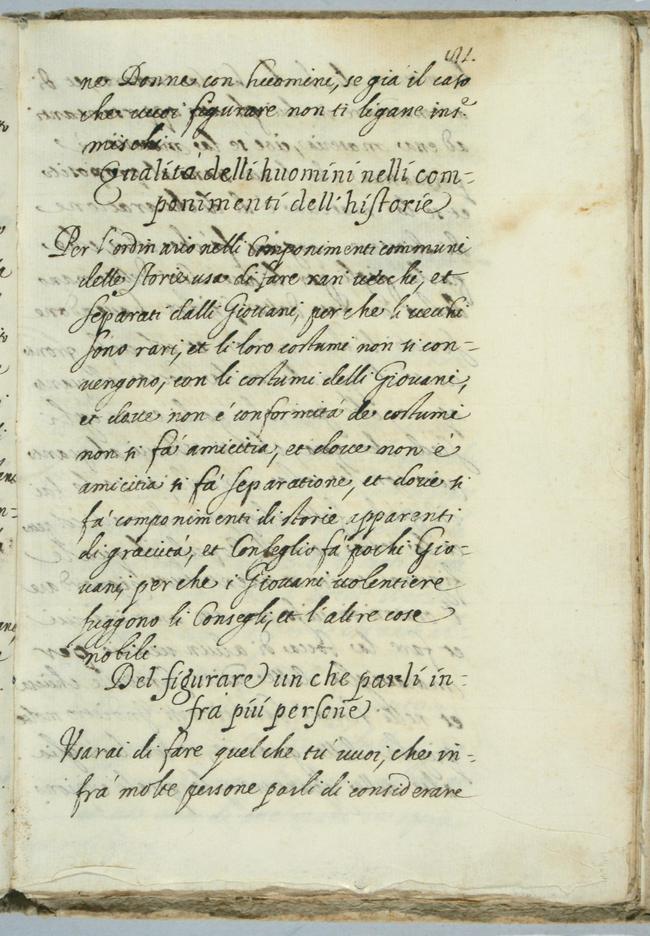 ne Donne con huomini, se già il caso
che vuoi figurare non ti ligane ins.e
mischi
Qualitá delli huomini nelli com-
ponimenti dell'historie
Per l'ordinario nelli Componimenti communi
delle storie usa di fare rari vecchi, et
separati dalli Giovani, perche li vecchi
sono rari, et li loro costumi non si con-
vengono, con li costumi delli Giovani,
et dove non é conformitá de costumi
non si fá amicitia, et dove non é
amicitia si fá separatione, et dove si
fá componimenti di storie apparenti
di gravitá, et Conseglio fá pochi Gio-
vani, perche i Giovani volentiere
fuggono li Consegli, et l'altre cose
nobili
Del figurare un che parli in-
fra piú persone
Usarai di fare quel che tu vuoi, che in-
frá molte persone parli di considerare